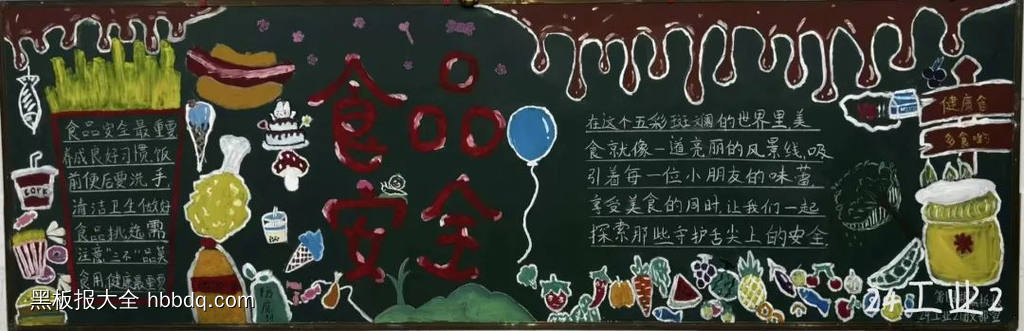 食品
安全
食品安全最重要
养成良好习惯,饭
前便后要洗手,
清洁卫生做好
食品挑选需
食用健康最重要
COFK
在这个五彩斑斓的世界里,美
食就像一道亮丽的风景线,吸
引着每一位小朋友的味蕾,
享受美食的同时让我们一起
探索那些守护舌尖上的安全
健康食
多食哟
黑板报大全 hbbdq.com
24工业2